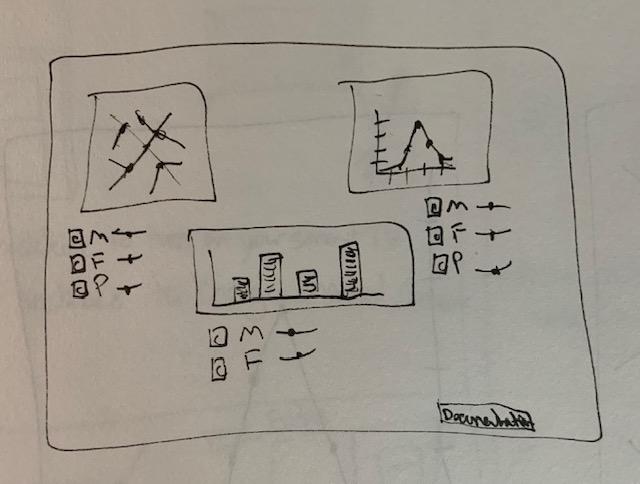 M
F
P
M
F
P
M
F
Documentation